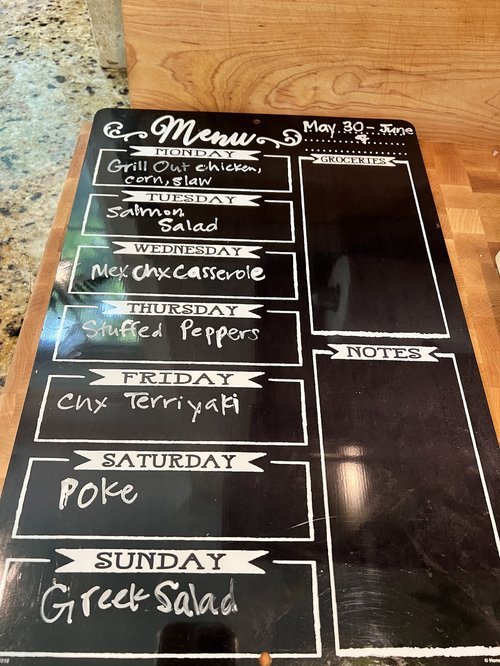 Menu
May 30 - June
MONDAY
Grill Out chicken,
corn, slaw
TUESDAY
Salmon
Salad
WEDNESDAY
Mex chx Casserole
THURSDAY
Stuffed Peppers
FRIDAY
Chx Terriyaki
SATURDAY
Poke
SUNDAY
Greek Salad
GROCERIES
NOTES